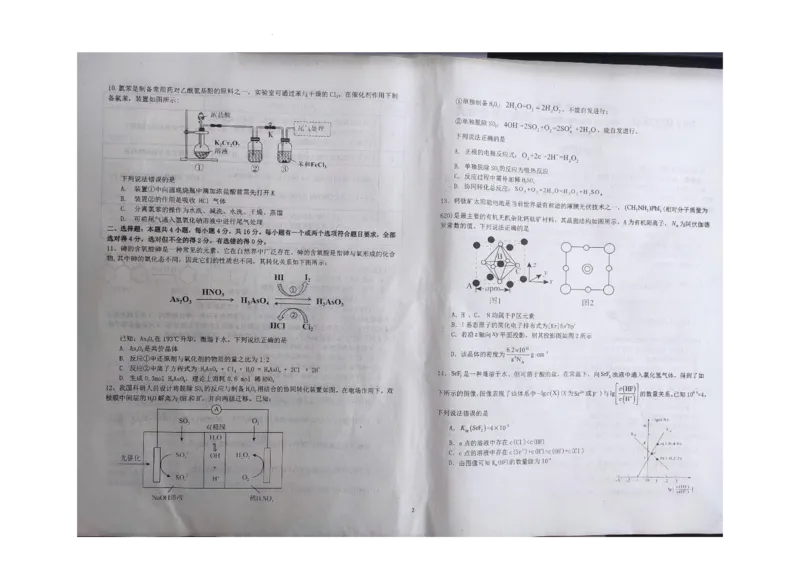 10.氯苯是制备重组药对乙酰氨基酚的原料之一，实验室可通过苯与干燥的Cl₂，在催化剂作用下制
备氯苯，装置如图所示：
浓盐酸
K
尾气处理
K₂Cr₂O₇
溶液
苯和FeCl₃
① ② ③
下列说法错误的是
A. 装置①中向圆底烧瓶中滴加浓盐酸前需先打开K
B. 装置②的作用是吸收HCl气体
C. 分离氯苯的操作为水洗、碱洗、水洗、干燥、蒸馏
D. 可将尾气通入氢氧化钠溶液中进行尾气处理
二、选择题：本题共4小题，每小题4分，共16分。每小题有一个或两个选项符合题目要求，全部
选对得4分，选对但不全的得2分，有选错的得0分。
11、砷的含氧酸砷是一种常见的元素，它在自然界中广泛存在。砷的含氧酸是指砷与氧形成的化合
物，其中砷的氧化态不同，因此它们的性质也不同，其转化关系如下图所示：
HI I₂
①
As₂O₃ HNO₃ H₃AsO₄ H₃AsO₃
②
HCl Cl₂
已知：As₂O₃在193℃升华，微溶于水，下列说法正确的是
A. As₂O₃是共价晶体
B. 反应①中还原剂与氧化剂的物质的量之比为1:2
C. 反应②中离子方程式为H₃AsO₃ + Cl₂ + H₂O = H₃AsO₄ + 2Cl⁻ + 2H⁺
D. 生成0.3mol H₃AsO₄，理论上消耗0.6 mol 稀HNO₃
12、我国科研人员设计将脱除SO₂的反应与制备H₂O₂相结合的协同转化装置如图。在电场作用下，双
极膜中间层的H₂O解离为OH⁻和H⁺，并向两极迁移。已知：
A
SO₂
O₂
双极膜
H₂O
光催化
OH⁻
H⁺
SO₃²⁻
SO₄²⁻
H₂O₂
O₂
NaOH溶液
稀H₂SO₄
①单独制备H₂O₂：2H₂O+O₂=2H₂O₂，不能自发进行；
②单独脱除SO₂：4OH⁻+2SO₂+O₂=2SO₄²⁻+2H₂O，能自发进行。
下列说法正确的是
A. 左极的电极反应式：O₂+2e⁻+2H⁺=H₂O₂
B. 单独脱除SO₂的反应为吸热反应
C. 反应过程中需补加稀H₂SO₄
D. 协同转化总反应：SO₂+O₂+2H₂O=H₂O₂+H₂SO₄
13、钙钛矿太阳能电池是当前世界最有前途的薄膜光伏技术之一，(CH₃NH₃)PbI₃(相对分子质量为
620)是最主要的有机无机杂化钙钛矿材料，其晶胞结构如图所示，A为有机阳离子，N_A为阿伏伽德
罗常数的值，下列说法正确的是
A
B
C
z
y
x
apm
图1
图2
A. H、C、N均属于P区元素
B. I基态原子的简化电子排布式为[Kr]5s²5p⁵
C. 若沿z轴向xy平面投影，则其投影图如图2所示
D. 该晶体的密度为 6.2×10³²/a³N_A g·cm⁻³
14、SrF₂是一种难溶于水、但可溶于酸的盐。在常温下，向SrF₂浊液中通入氯化氢气体，得到了如
下所示的图像，图像表现了该体系中-lgc(X)(X为Sr²⁺或F⁻)与lg[c(HF)/c(H⁺)]的数量关系。已知10^0.6=4。
下列说法错误的是
A. Ksp(SrF₂)=4×10⁻⁹
B. a点的溶液中存在c(Cl⁻)<c(HF)
C. c点的溶液中存在c(Sr²⁺)+c(H⁺)=c(OH⁻)+c(Cl⁻)
2